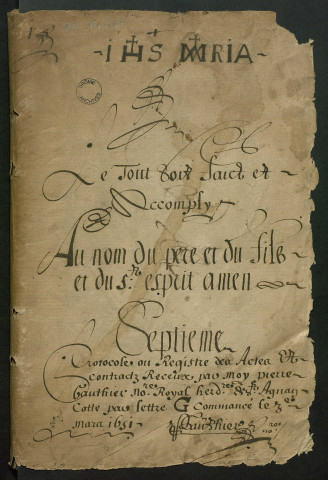 IHS MRIA
Le Tout soit faict et
Accomply
Au nom du père et du fils
et du st. esprit amen
Septieme
Protocole ou Registre des Actes et
contractz Receux par moy pierre
Gauthier nore. Royal herdre. de St. Agnan
Cotte par lettre G Commancé le 3e
mars 1651
Gauthier